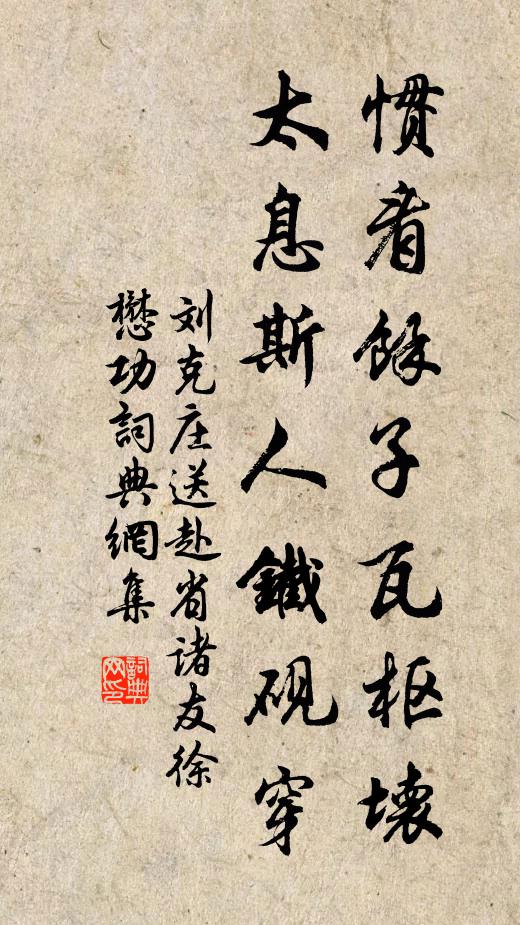 惯看馀子瓦枢壞
太息斯人鐵砚穿
刘克庄送赴省诸友徐
懋功詞典網集
詞典网印